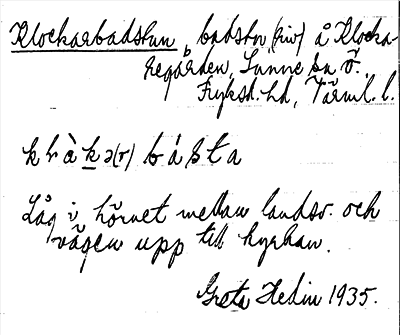 Klockarbadstun, badstu (riv) å Klocka-
regården, Sunne sn Ö.
Fryksd. hd, Värml. l.
k l ɔ̀ k ə(r) b á s t a
Låg i hörnet mellan landsv. och
vägen upp till kyrkan.
Greta Hedin 1935.